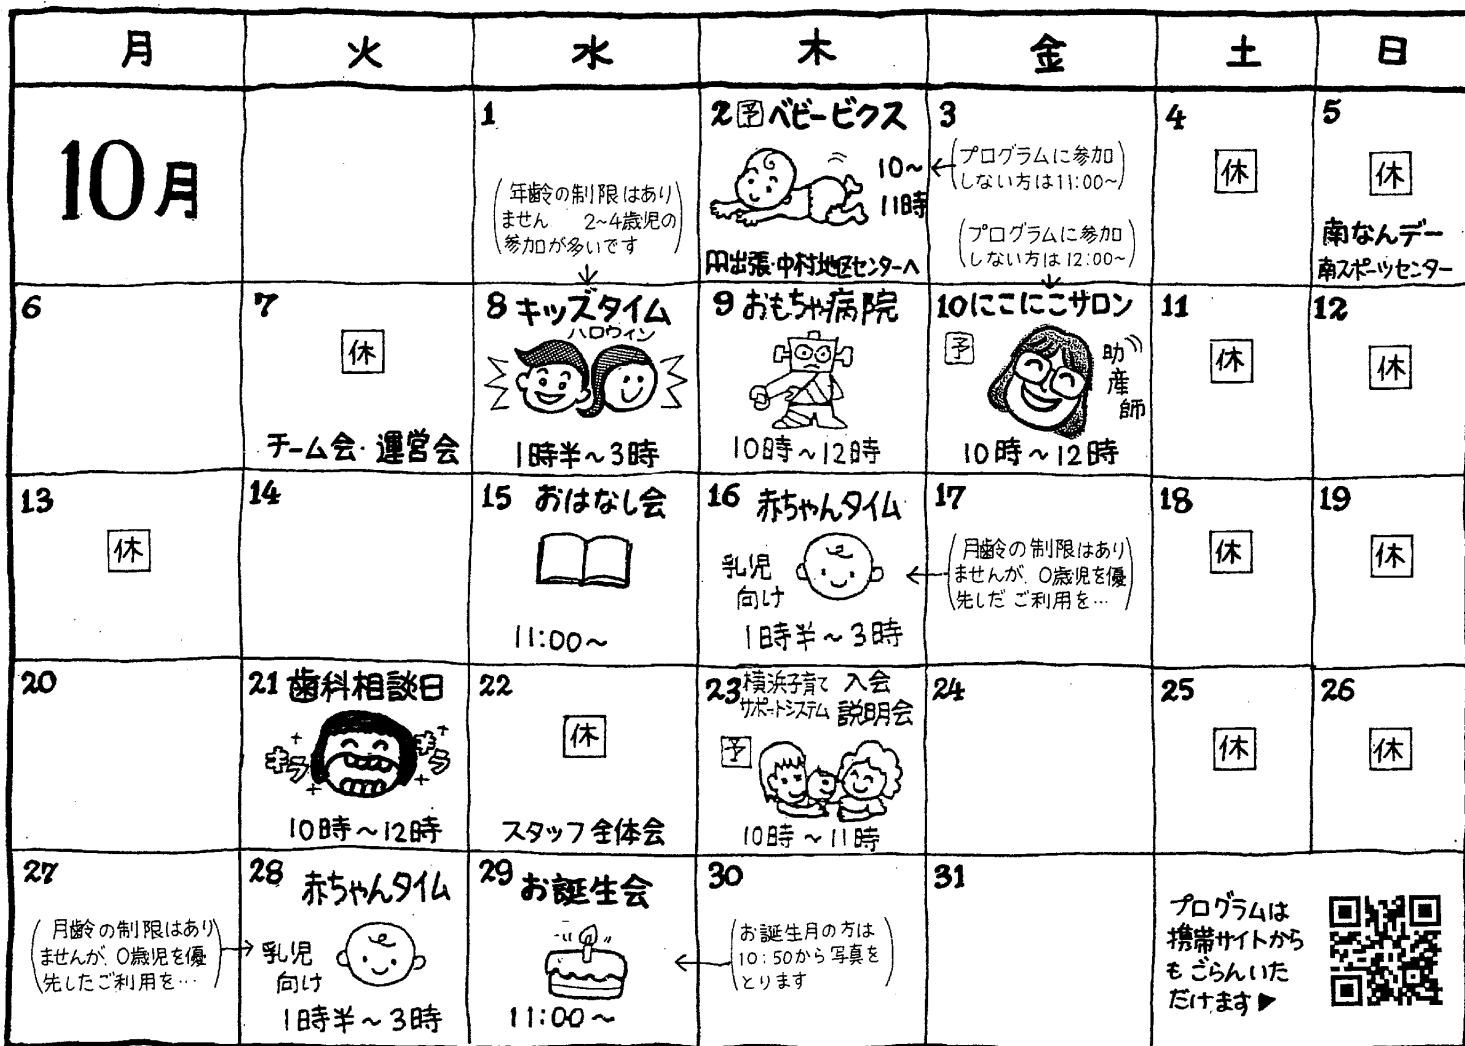 月 火 水 木 金 土 日
10月
1
(年齢の制限はあり
ません 2~4歳児の
参加が多いです)
2 予 ベビービクス
10~
11時
出張・中村地区センターへ
3
(プログラムに参加
しない方は11:00~)
(プログラムに参加
しない方は12:00~)
4
休
5
休
南なんデー
南スポーツセンター
6
7
休
チーム会・運営会
8 キッズタイム
ハロウィン
1時半~3時
9 おもちゃ病院
10時~12時
10 にこにこサロン
予
助産師
10時~12時
11
休
12
休
13
休
14
15 おはなし会
11:00~
16 赤ちゃんタイム
乳児
向け
1時半~3時
17
(月齢の制限はあり
ませんが、0歳児を優
先しだご利用を…)
18
休
19
休
20
21 歯科相談日
キラ
キラ
10時~12時
22
休
スタッフ全体会
23 横浜子育て 入会
サポートシステム 説明会
予
10時~11時
24
25
休
26
休
27
(月齢の制限はあり
ませんが、0歳児を優
先したご利用を…)
28 赤ちゃんタイム
乳児
向け
1時半~3時
29 お誕生会
11:00~
30
(お誕生月の方は
10:50から写真を
とります)
31
プログラムは
携帯サイトから
もごらんいた
だけます▶